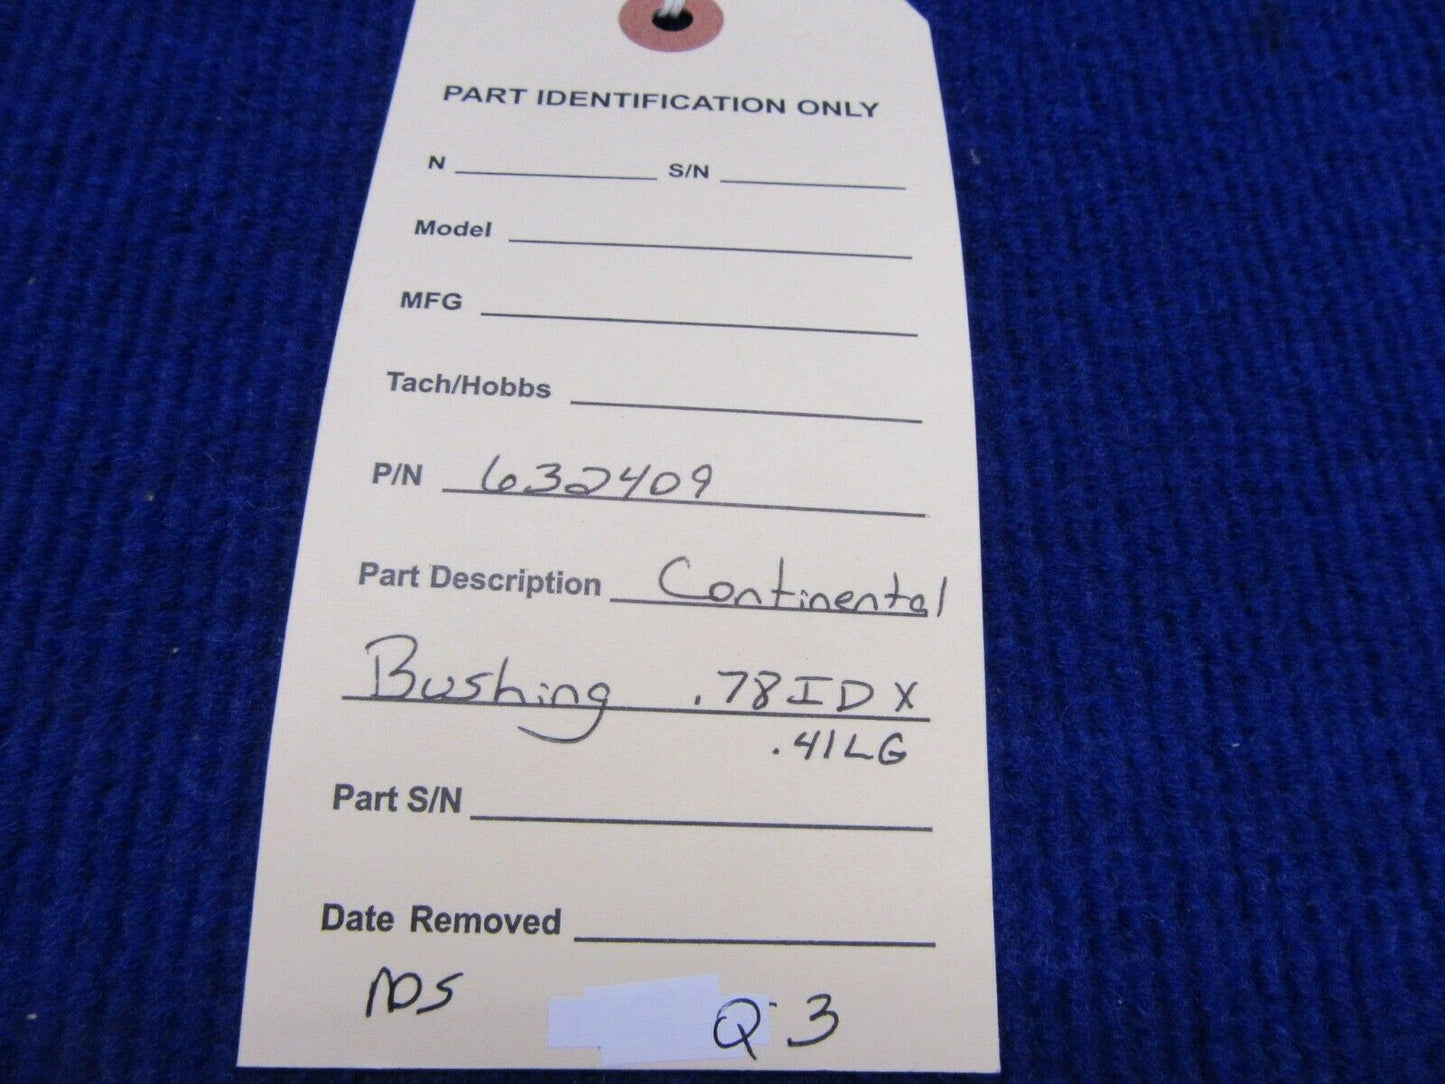 PART IDENTIFICATION ONLY
N S/N
Model
MFG
Tach/Hobbs
P/N 632409
Part Description Continental
Bushing .78 ID X
.41 LG
Part S/N
Date Removed
NDS
Q 3